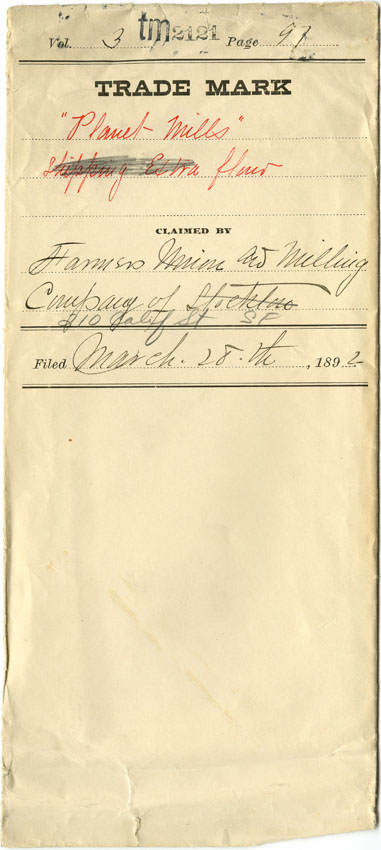 Vol. 3 tm2121 Page 97
TRADE MARK
"Planet Mills"
Shipping Extra flour
CLAIMED BY
Farmers Union and Milling
Company of Stockton
310 Calif St SF
Filed March. 28.th, 1892